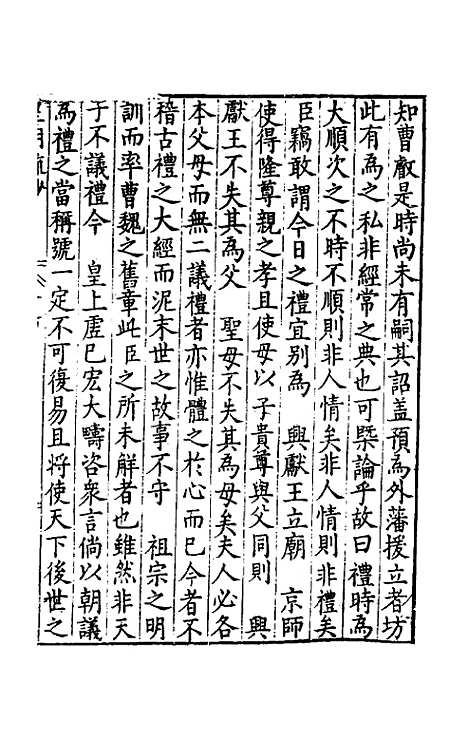 知曹叡是時尚未有嗣其詔盖預為外藩援立者坊
此有為之私非經常之典也可槩論乎故曰禮時為
大順次之不時不順則非人情矣非人情則非禮矣
臣竊敢謂今日之禮宜别為　興獻王立廟　京師
使得隆尊親之孝且使母以子貴尊與父同則　興
獻王不失其為父　聖母不失其為母矣夫人必各
本父母而無二議禮者亦惟體之於心而已今者不
稽古禮之大經而泥末世之故事不守　祖宗之明
訓而率曹魏之舊章此臣之所未觧者也雖然非天
子不議禮今　皇上虚已宏大疇咨衆言倘以朝議
為禮之當稱號一定不可復易且將使天下後世之